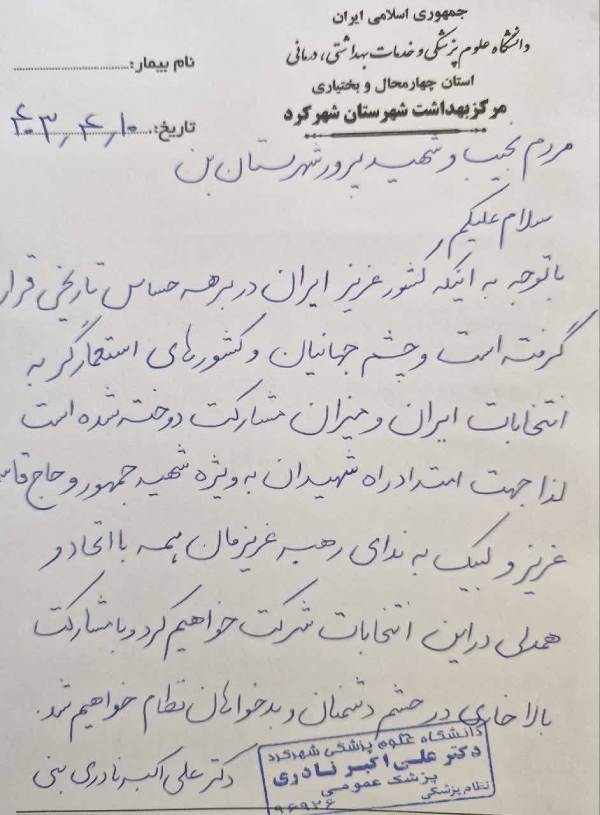 جمهوری اسلامی ایران
دانشگاه علوم پزشکی و خدمات بهداشتی، درمانی
استان چهارمحال و بختیاری
مرکز بهداشت شهرستان شهرکرد
نام بیمار:
تاریخ: ۴۰۳٫۴٫۱۰
مردم نجیب و شهید پرور شهرستان بن
سلام علیکم
با توجه به اینکه کشور عزیز ایران در برهه حساس تاریخی قرار
گرفته است و چشم جهانیان و کشورهای استعمارگر به
انتخابات ایران و میزان مشارکت دوخته شده است
لذا جهت امتداد راه شهیدان به ویژه شهید جمهور و حاج قاس
عزیز و لبیک به ندای رهبر عزیزمان همه با اتحاد و
همدلی در این انتخابات شرکت خواهیم کرد و با مشارکت
بالا خاری در چشم دشمنان و بدخواهان نظام خواهیم شد.
دکتر علی اکبر نادری بنی
دانشگاه علوم پزشکی شهرکرد
دکتر علی اکبر نادری
پزشک عمومی
نظام پزشکی ۹۶۹۲۶